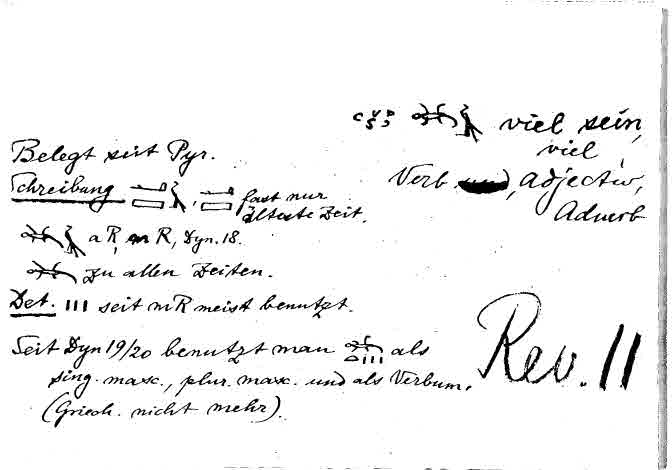 ꜥšꜣ 𓆈𓄿 viel sein,
viel
Verb, Adjectiv,
Adverb
Belegt seit Pyr.
Schreibung 𓂝𓈙𓄿, 𓂝𓈙 fast nur
älteste Zeit.
𓆈𓄿 aR, mR, Dyn. 18.
𓆈 zu allen Zeiten.
Det. III seit mR meist benutzt.
Seit Dyn 19/20 benutzt man als
sing. masc., plur. masc. und als Verbum.
(Griech. nicht mehr).
Rev. II